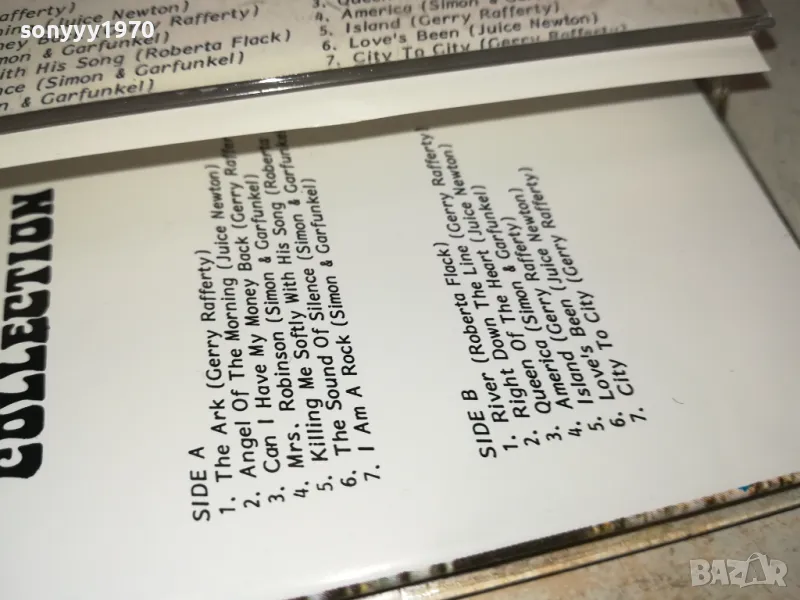 sonyyy1970
ney B
Rafferty)
mon & Garfunkel)
ith His Song (Roberta Flack)
nce (Simon & Garfunkel)
n & Garfunkel)
4. America (Simon &
5. Island (Gerry Rafferty)
6. Love's Been (Juice Newton)
7. City To City (Gerry Rafferty)
COLLECTION
SIDE A
1. The Ark (Gerry Rafferty)
2. Angel Of The Morning (Juice Newton)
3. Can I Have My Money Back (Gerry Raffer
4. Mrs. Robinson (Simon & Garfunkel)
5. Killing Me Softly With His Song (Roberta
6. The Sound Of Silence (Simon & Garfunke
7. I Am A Rock (Simon & Garfunkel)
SIDE B
1. River (Roberta Flack)
2. Right Down The Line (Gerry Rafferty)
3. Queen Of The Heart (Juice Newton)
4. America (Simon & Garfunkel)
5. Island (Gerry Rafferty)
6. Love's Been (Juice Newton)
7. City To City (Gerry Rafferty)
BAZAR